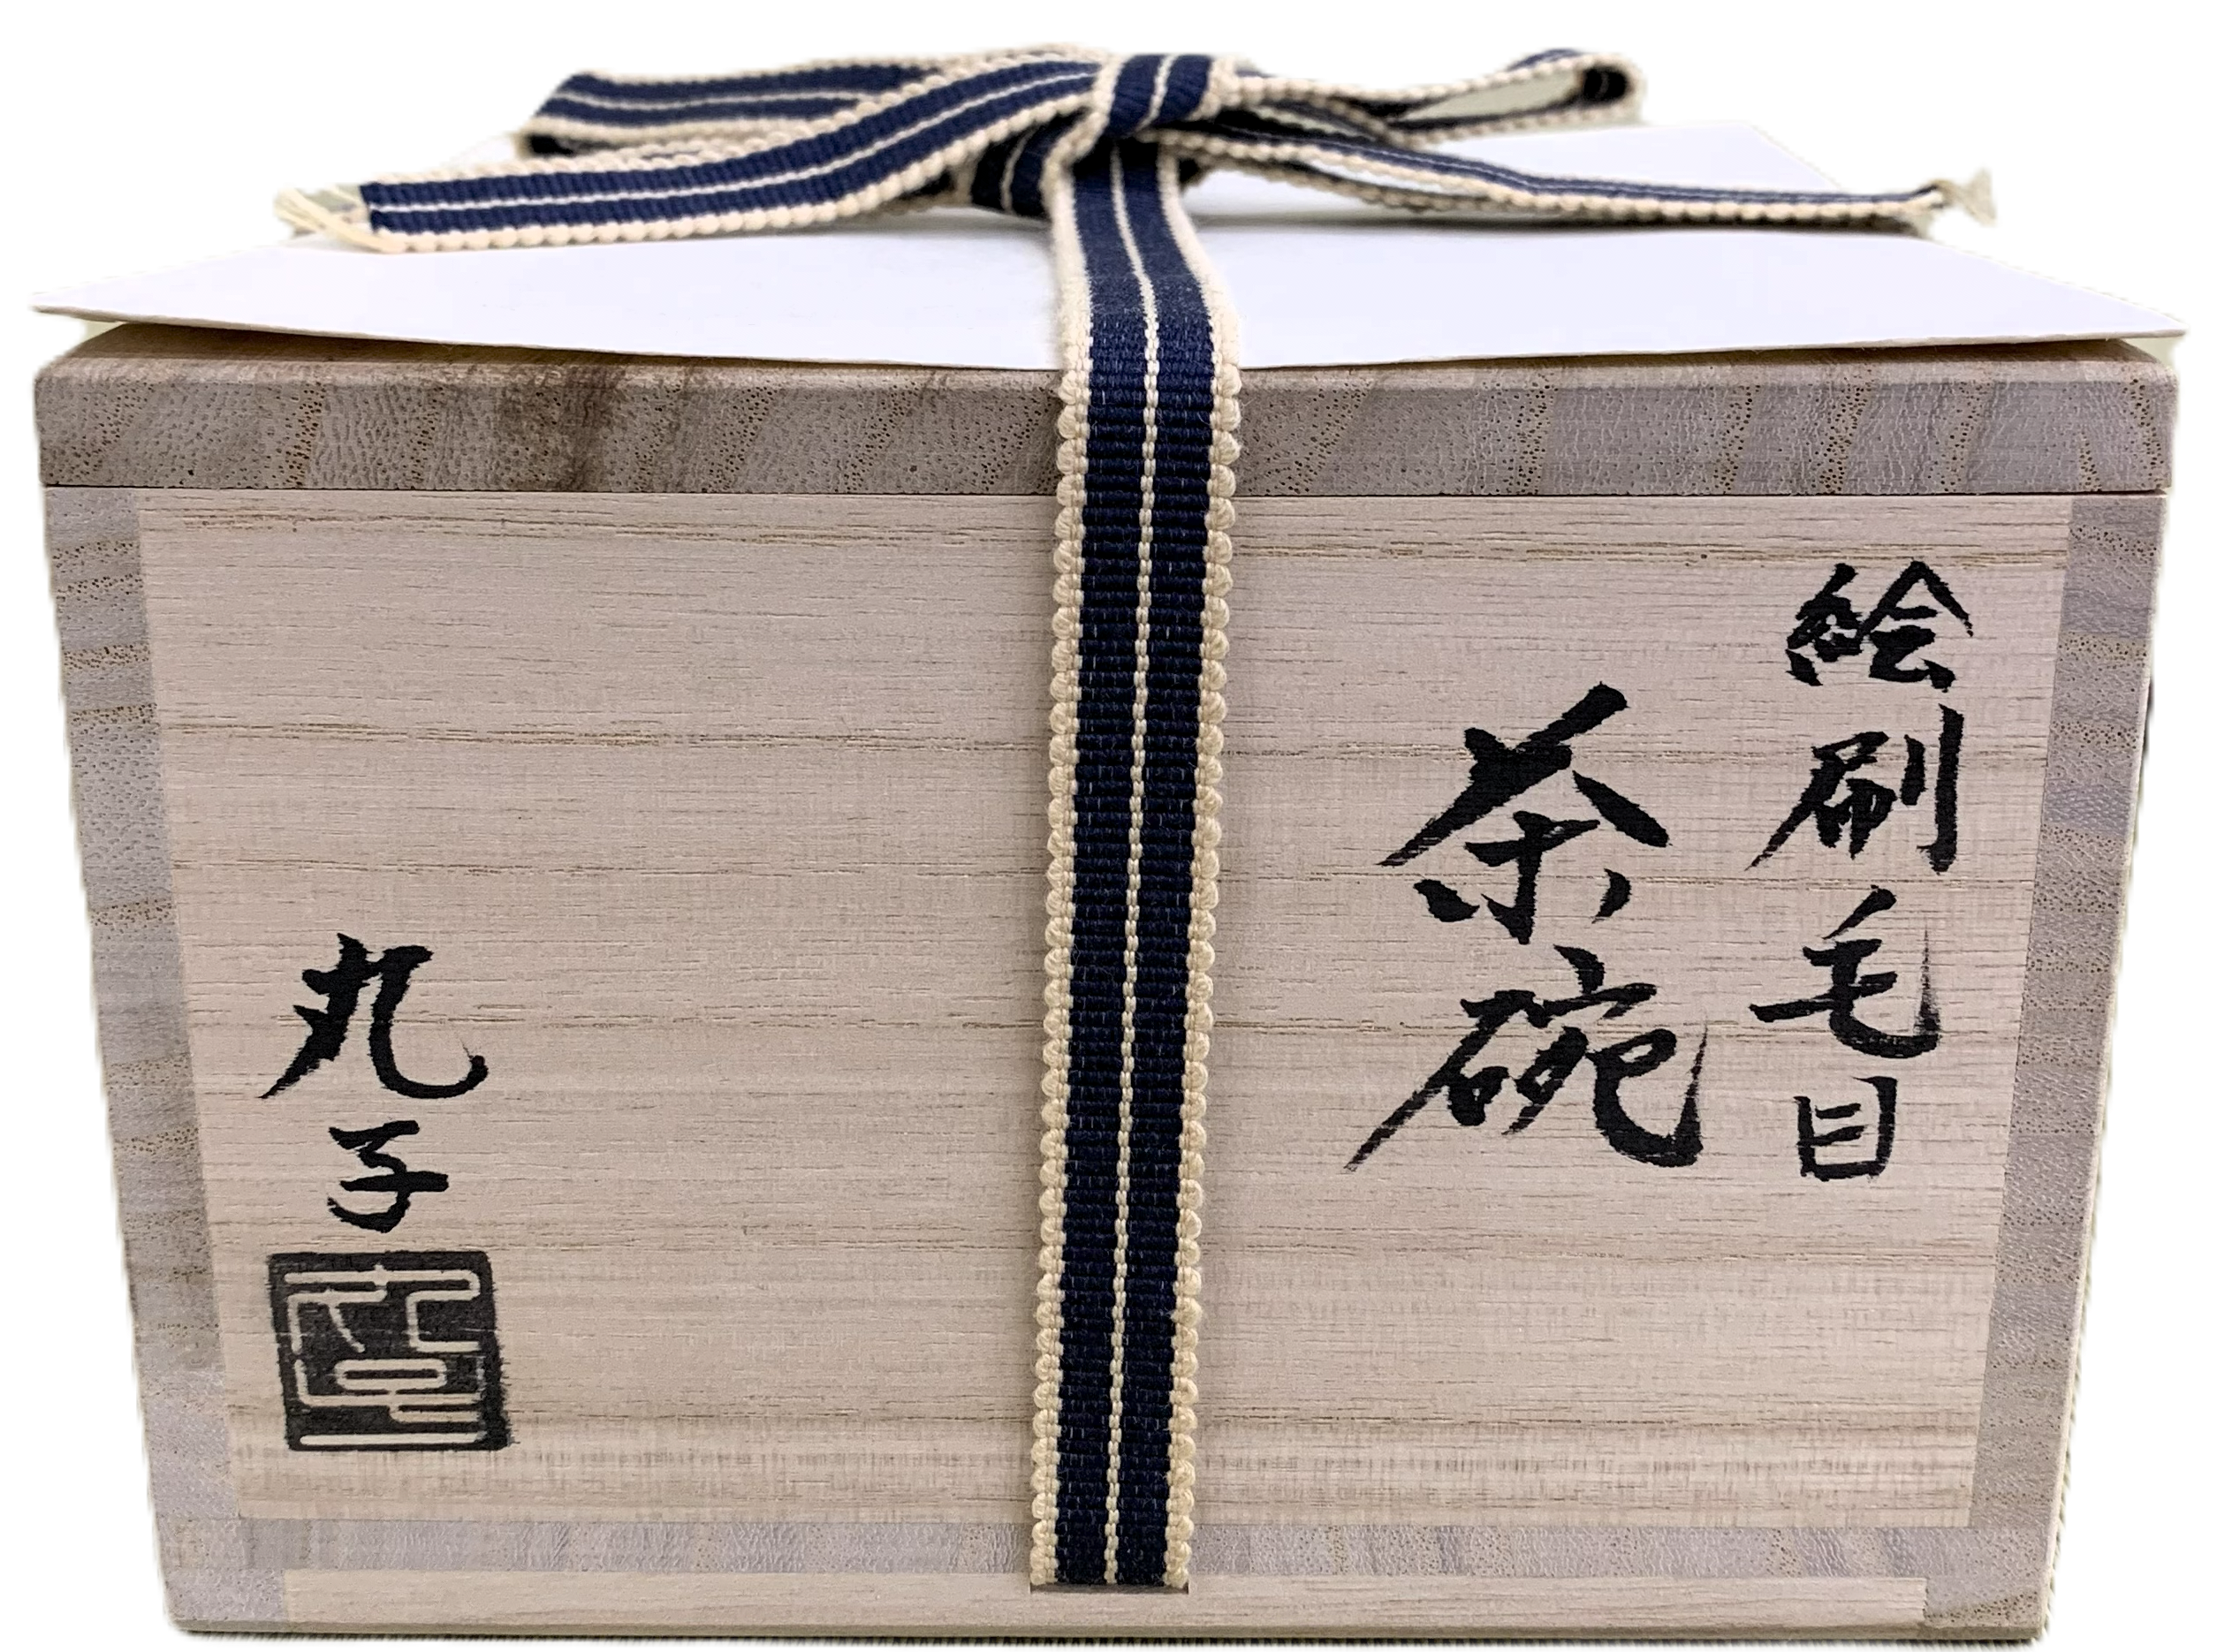 絵刷毛目
茶碗
丸子